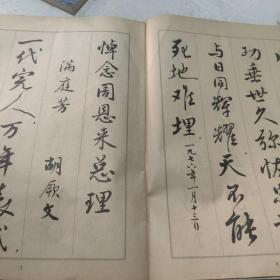 功垂世久弥
与日同辉耀天不能
死地难埋
一九七六年一月十三日
悼念周恩来总理
满庭芳
胡厥文
一代完人万年